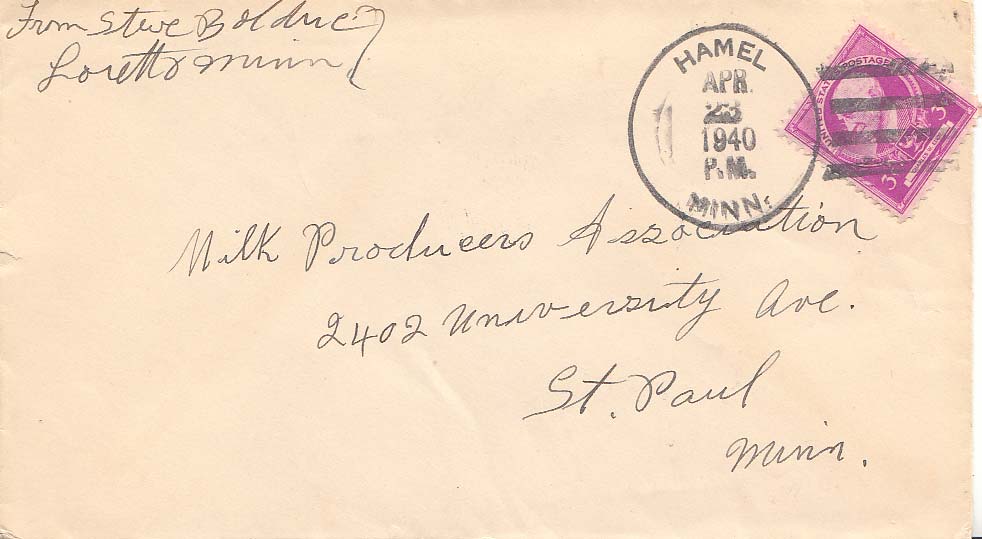 From Steve Bolduc
Loretto Minn
HAMEL
APR.
23
1940
P.M.
MINN.
UNITED STATES POSTAGE
3
3
Milk Producers Association
2402 University Ave.
St. Paul
Minn.